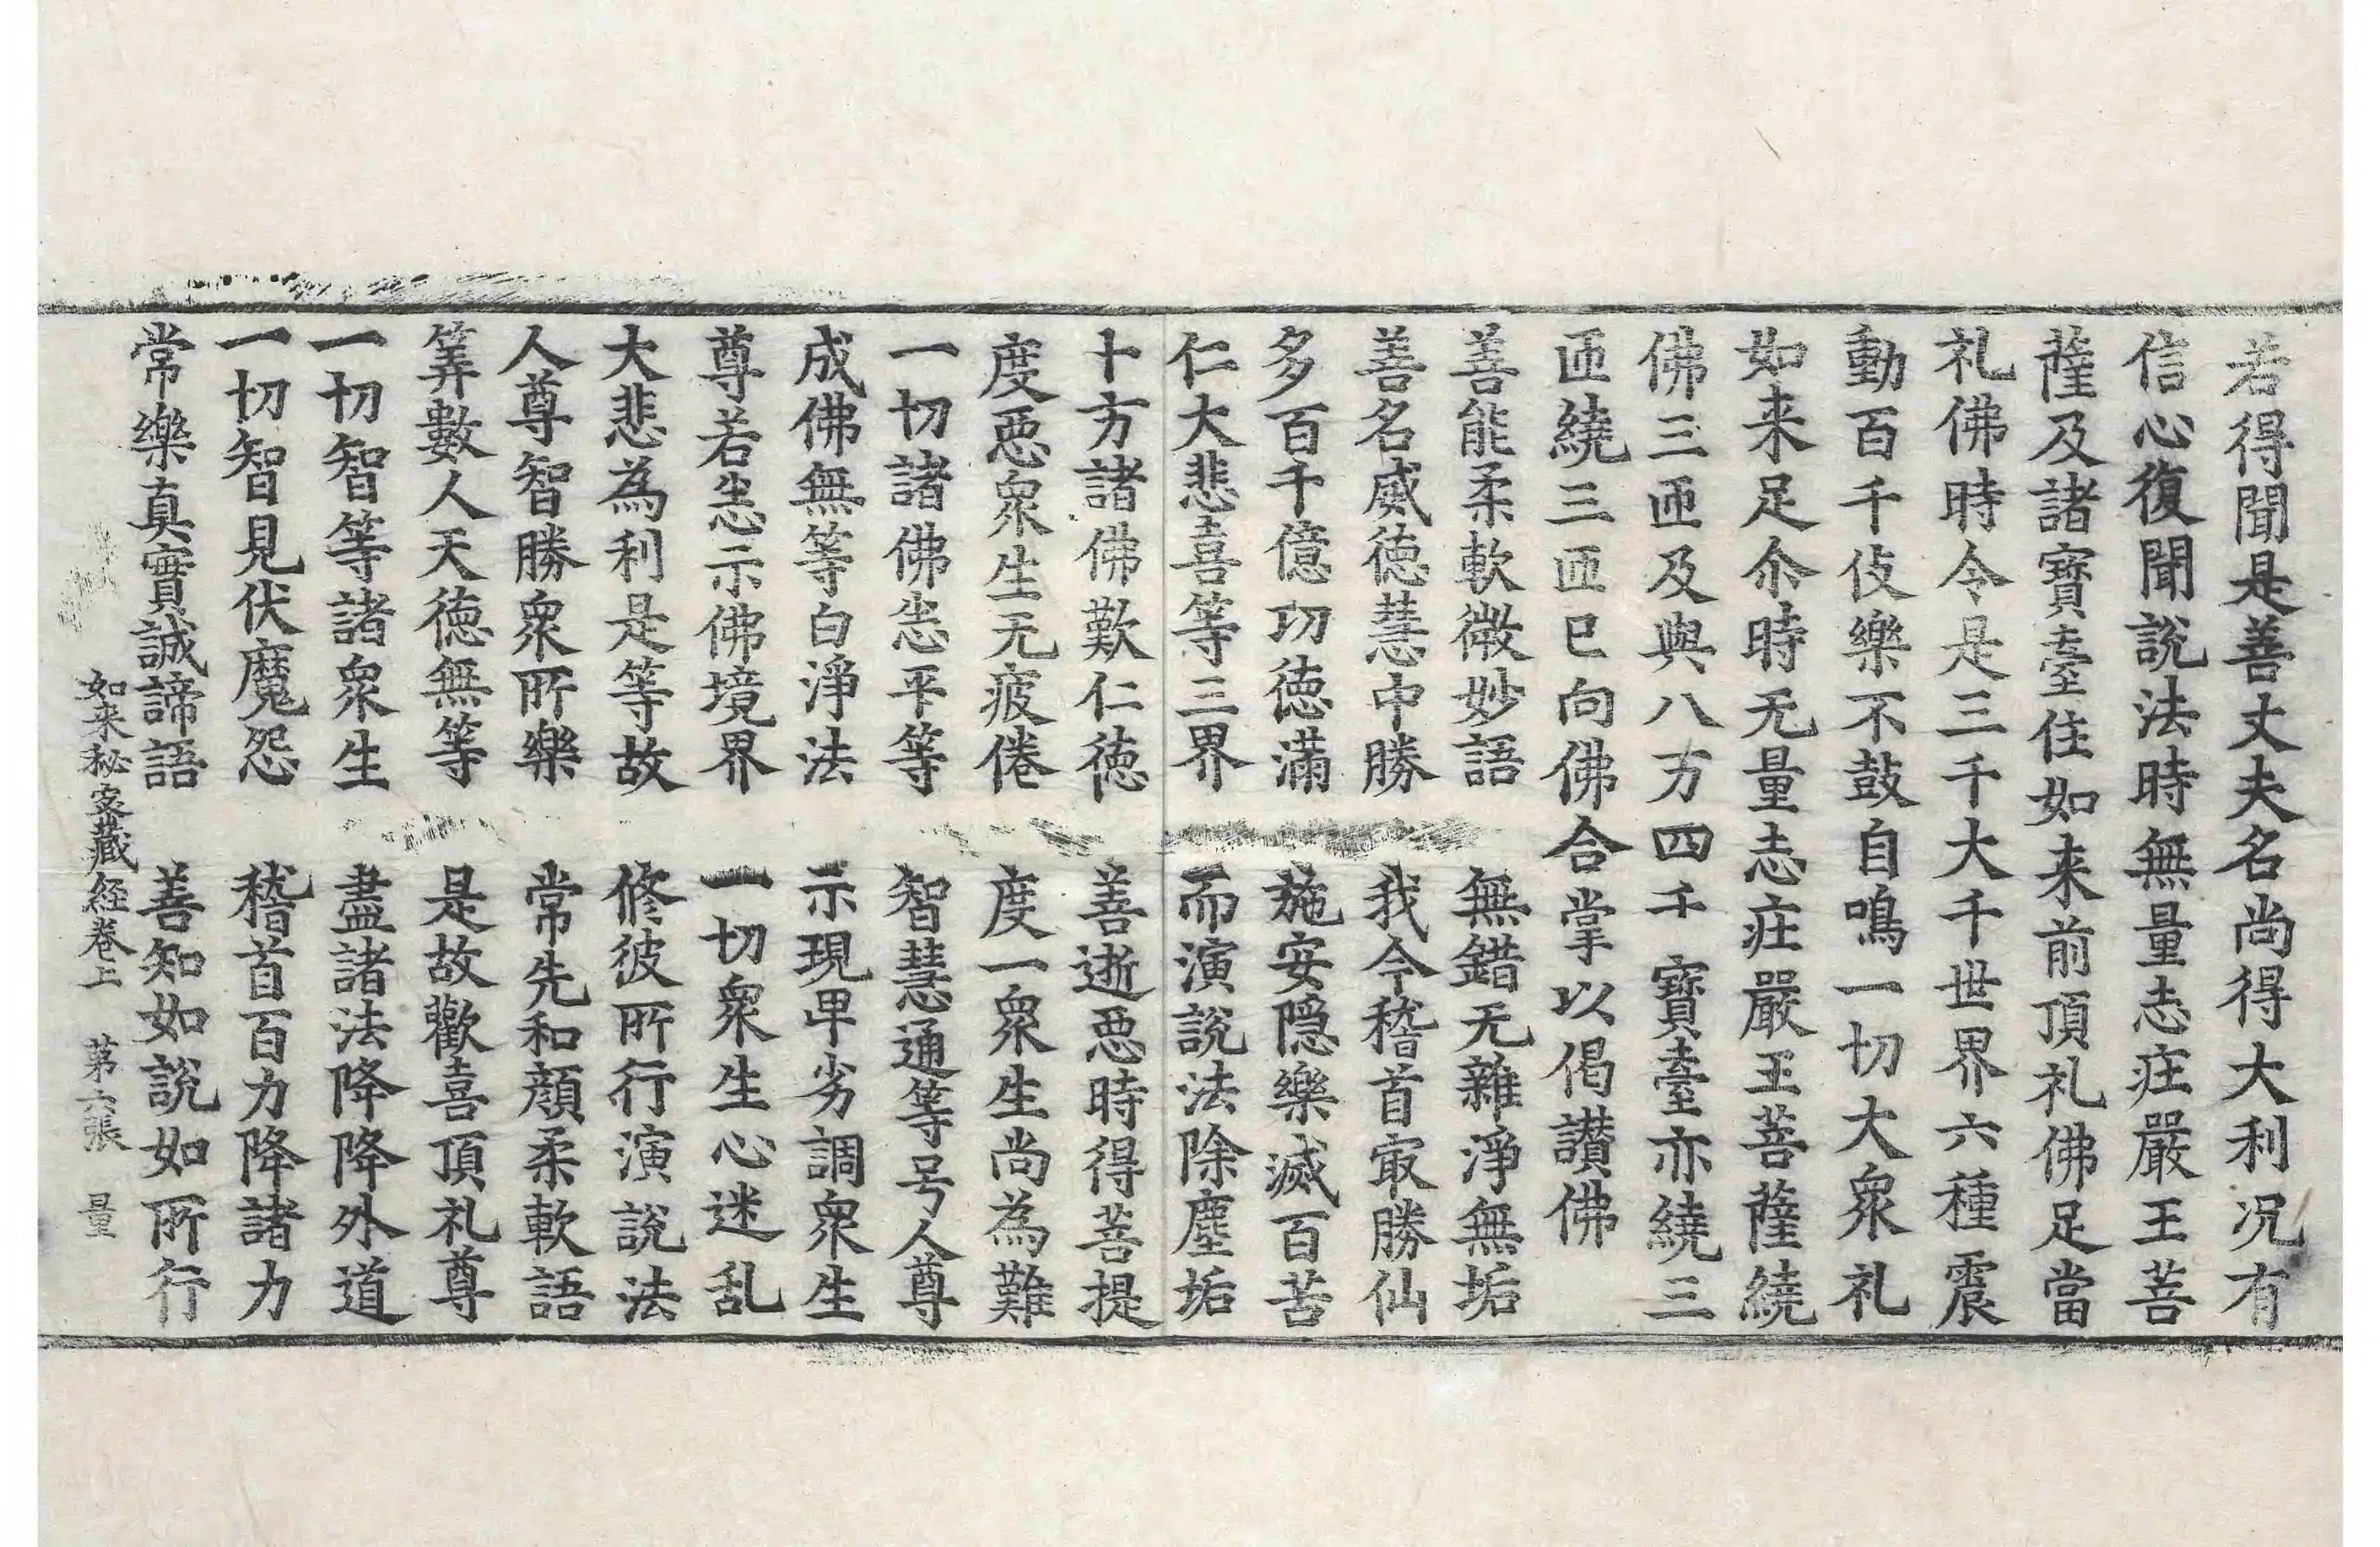 若得聞是善丈夫名尚得大利况有
信心復聞說法時無量志庄嚴王菩
薩及諸寶臺住如来前頂礼佛足當
礼佛時令是三千大千世界六種震
動百千伎樂不鼓自鳴一切大衆礼
如来足尒時无量志庄嚴王菩薩繞
佛三匝及與八万四千寶臺亦繞三
匝繞三匝已向佛合掌以偈讃佛
善能柔軟微妙語　無錯无雜淨無垢
善名威徳慧中勝　我今稽首㝡勝仙
多百千億功徳滿　施安隠樂滅百苦
仁大悲喜等三界　而演說法除塵垢
十方諸佛歎仁徳　善逝惡時得菩提
度惡衆生无疲倦　度一衆生尚為難
一切諸佛恙平等　智慧通等号人尊
成佛無等白淨法　示現卑劣調衆生
尊若恙示佛境界　一切衆生心迷乱
大悲為利是等故　修彼所行演說法
人尊智勝衆所樂　常先和顔柔軟語
筭數人天徳無等　是故歡喜頂礼尊
一切智等諸衆生　盡諸法降降外道
一切智見伏魔怨　稽首百力降諸力
常樂真實誠諦語　善知如說如所行
如来秘密藏経卷上　苐六張　量